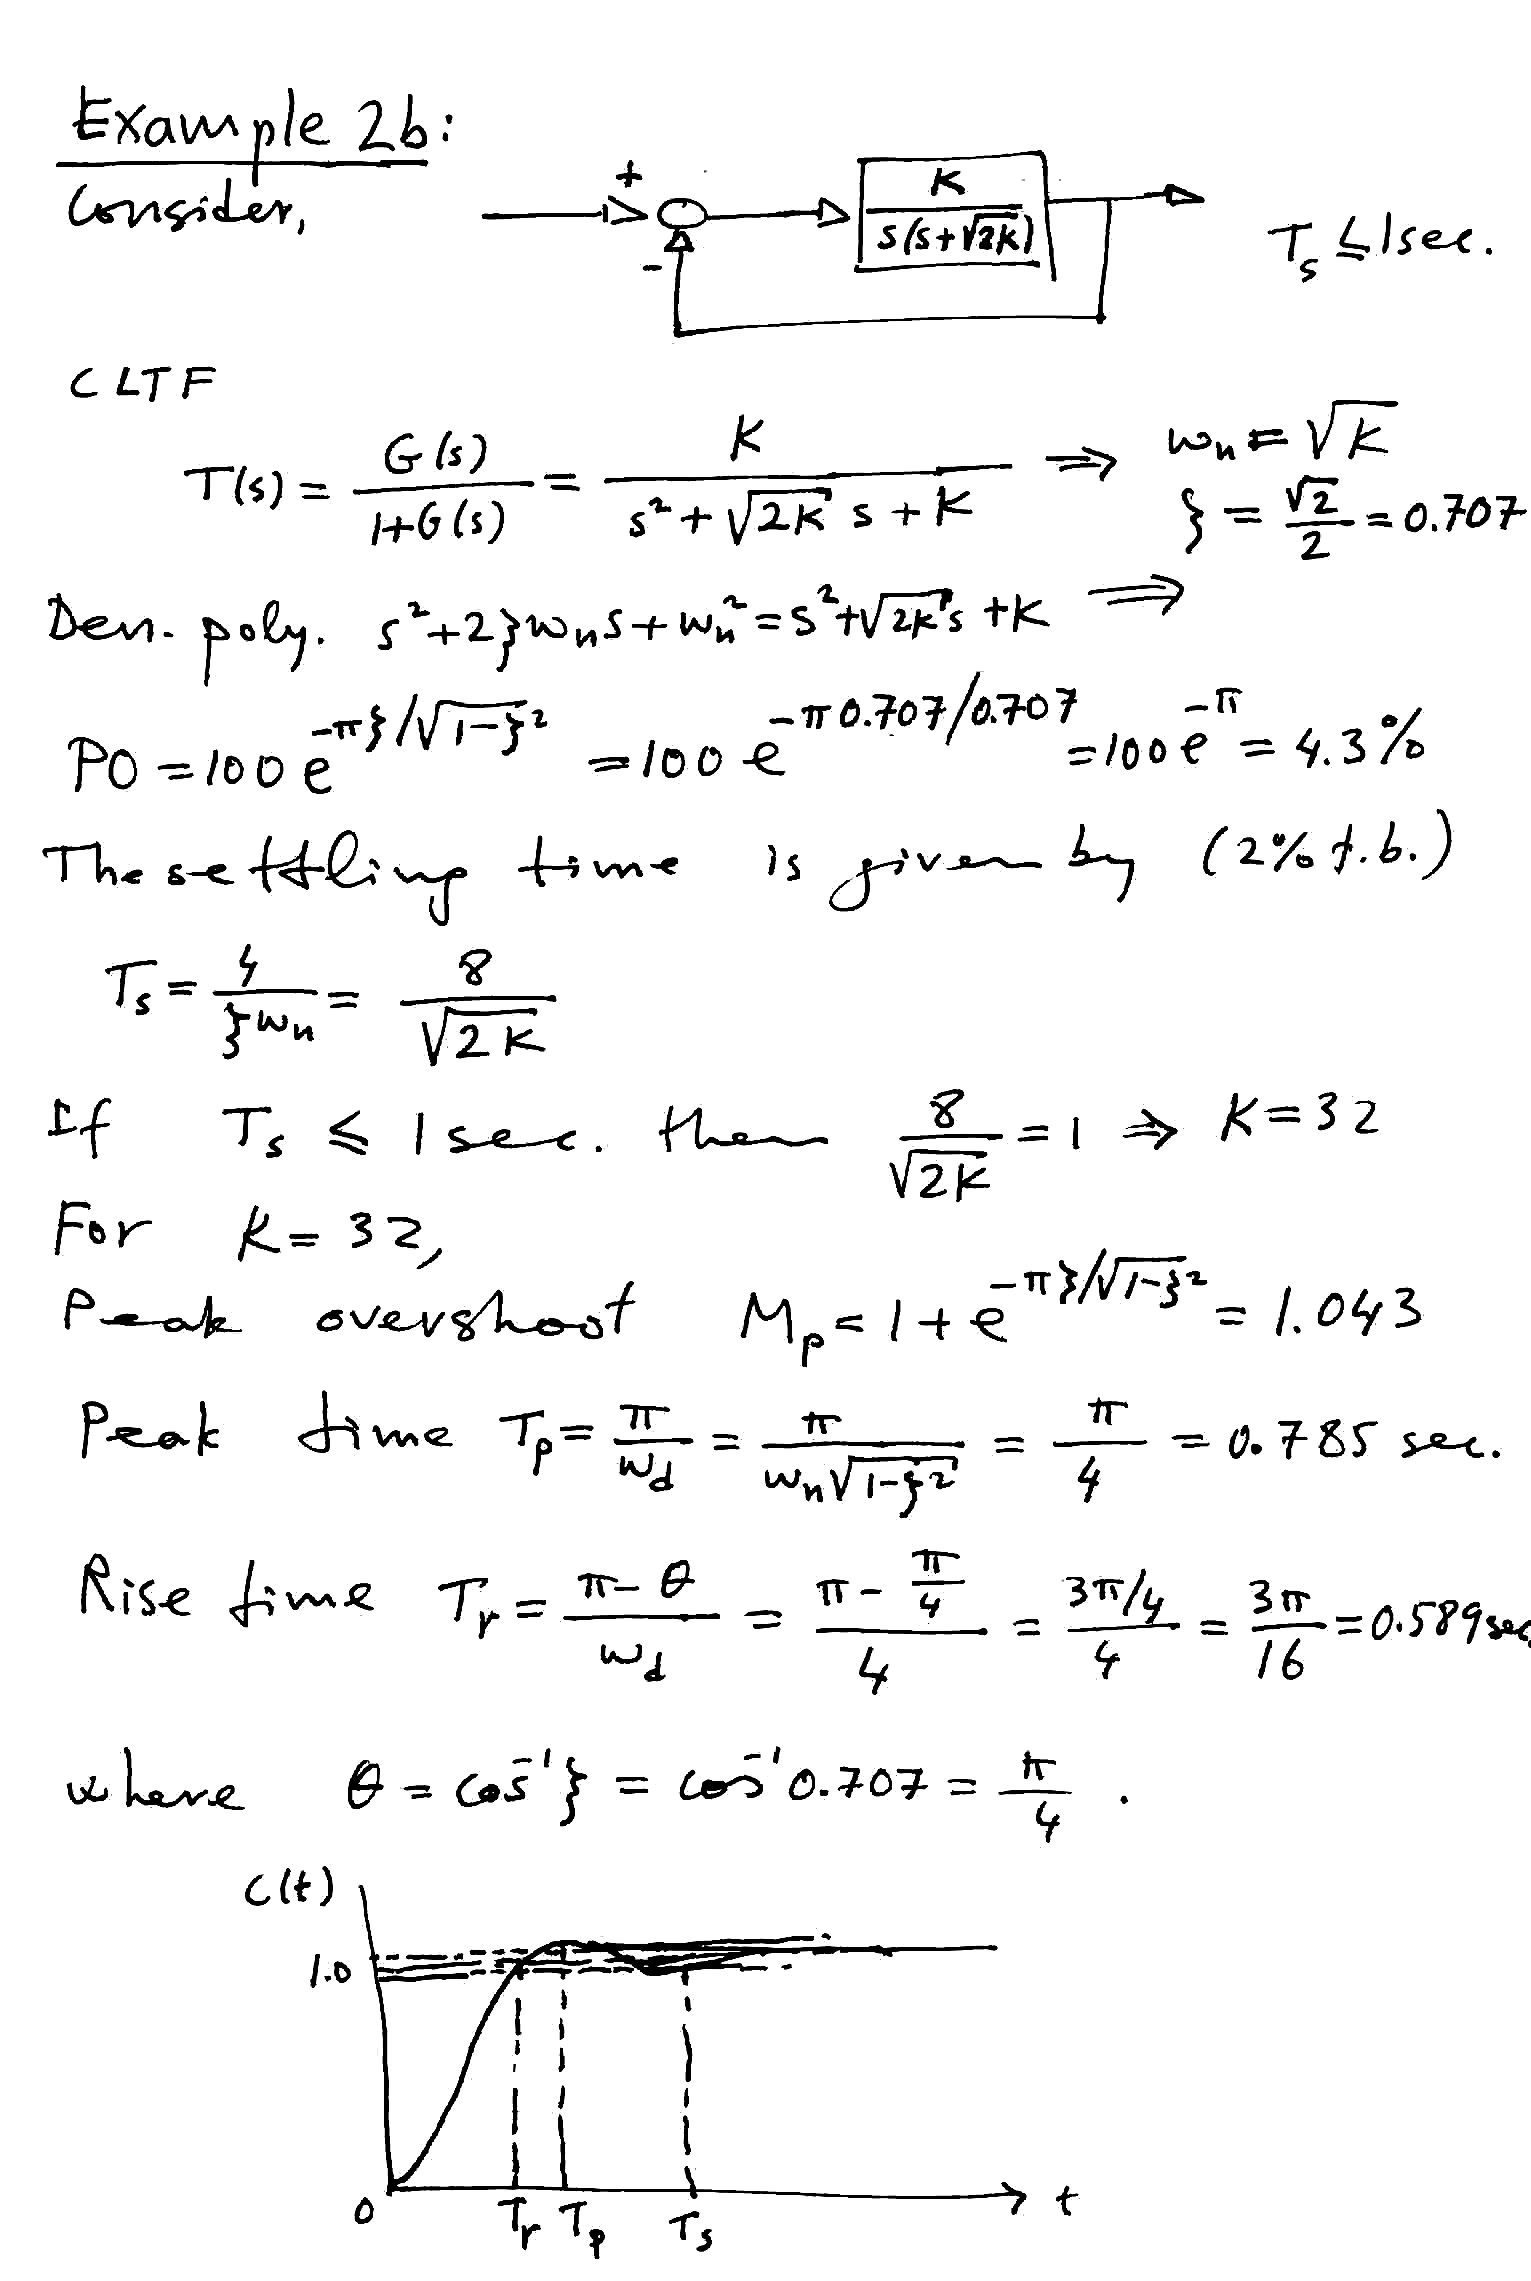 Example 2b:
Consider,
+
-
K / s(s+√2K)
Ts ≤ 1 sec.
CLTF
T(s) = G(s) / 1+G(s) = K / s² + √2K s + K ⇒ wn = √K
ζ = √2 / 2 = 0.707
Den. poly. s² + 2ζwn s + wn² = s² + √2K s + K ⇒
PO = 100 e^(-πζ/√1-ζ²) = 100 e^(-π 0.707/0.707) = 100 e^-π = 4.3%
The settling time is given by (2% t.b.)
Ts = 4 / ζwn = 8 / √2K
If Ts ≤ 1 sec. then 8 / √2K = 1 ⇒ K = 32
For K = 32,
Peak overshoot Mp = 1 + e^(-πζ/√1-ζ²) = 1.043
Peak time Tp = π / wd = π / wn√1-ζ² = π / 4 = 0.785 sec.
Rise time Tr = π - θ / wd = π - π/4 / 4 = 3π/4 / 4 = 3π / 16 = 0.589 sec.
where θ = cos⁻¹ ζ = cos⁻¹ 0.707 = π / 4 .
C(t)
1.0
0 Tr Tp Ts t